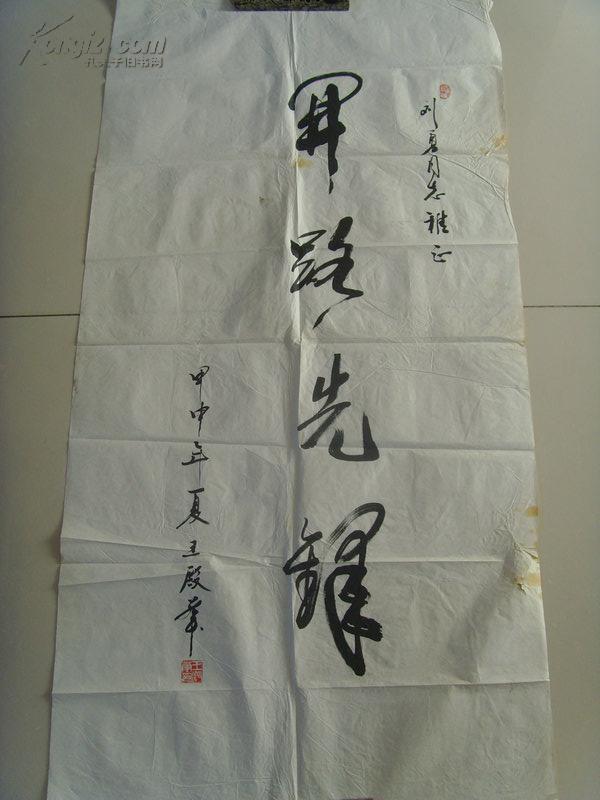 刘夏同志雅正
開路先鋒
甲申年夏王殿華
Kongfz.com
孔夫子旧书网